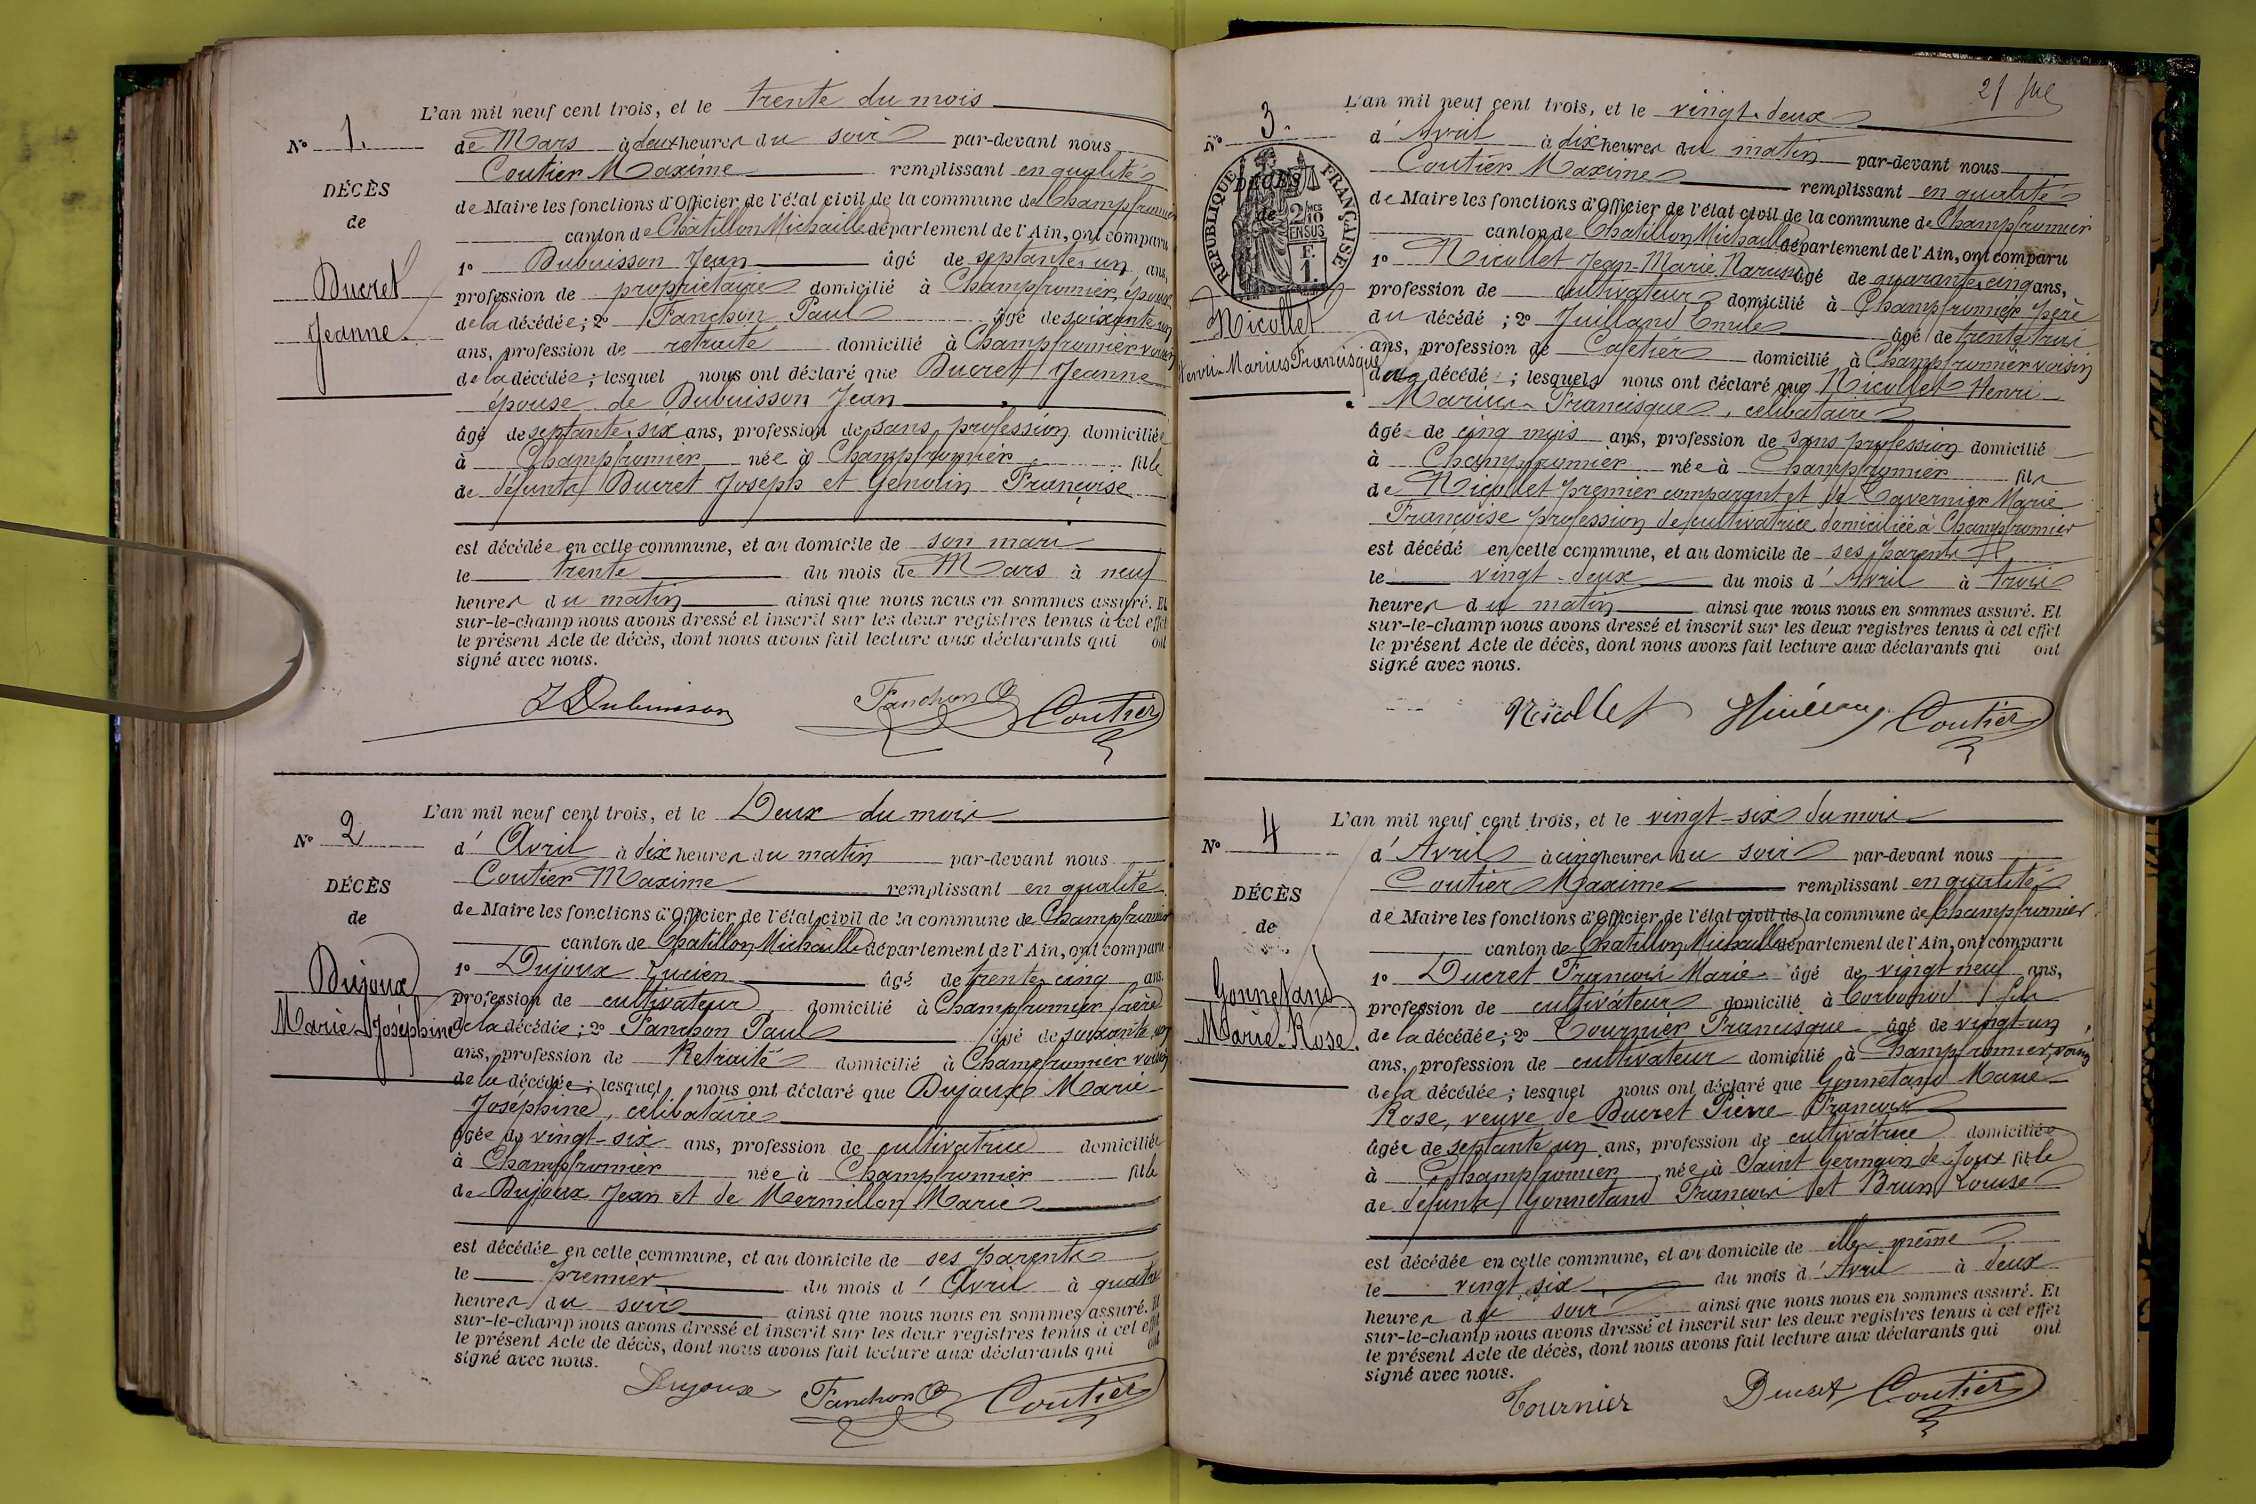 L'an mil neuf cent trois, et le trente du mois
N° 1.
de Mars à deux heures du soir par-devant nous
Coutier Maxime remplissant en qualité
DÉCÈS
de Maire les fonctions d'Officier de l'état civil de la commune de Champfromier
de
canton de Chatillon Michaille département de l'Ain, ont comparu
1° Dubuisson Jean âgé de septante un ans,
Ducret
profession de propriétaire domicilié à Champfromier, époux
de la décédée; 2° Fanchon Paul âgé de soixante un
Jeanne.
ans, profession de retraité domicilié à Champfromier voisin
de la décédée; lesquel nous ont déclaré que Ducret Jeanne
épouse de Dubuisson Jean
âgé de septante six ans, profession de sans profession domiciliée
à Champfromier née à Champfromier fille
de défunts Ducret Joseph et Genolin Françoise
est décédée en cette commune, et au domicile de son mari
le trente du mois de Mars à neuf
heures du matin ainsi que nous nous en sommes assuré. Et
sur-le-champ nous avons dressé et inscrit sur les deux registres tenus à cet effet
le présent Acte de décès, dont nous avons fait lecture aux déclarants qui ont
signé avec nous.
J Dubuisson Fanchon Coutier
L'an mil neuf cent trois, et le Deux du mois
N° 2
d' Avril à dix heures du matin par-devant nous
Coutier Maxime remplissant en qualité
DÉCÈS
de Maire les fonctions d'Officier de l'état civil de la commune de Champfromier
de
canton de Chatillon Michaille département de l'Ain, ont comparu
1° Dujoux Lucien âgé de trente cinq ans,
Dujoux
profession de cultivateur domicilié à Champfromier frère
Marie Joséphine
de la décédée; 2° Fanchon Paul âgé de soixante un
ans, profession de Retraité domicilié à Champfromier voisin
de la décédée; lesquel nous ont déclaré que Dujoux Marie
Joséphine, célibataire
âgée de vingt-six ans, profession de cultivatrice domiciliée
à Champfromier née à Champfromier fille
de Dujoux Jean et de Mermillon Marie
est décédée en cette commune, et au domicile de ses parents
le premier du mois d' Avril à quatre
heures du soir ainsi que nous nous en sommes assuré. Et
sur-le-champ nous avons dressé et inscrit sur les deux registres tenus à cet effet
le présent Acte de décès, dont nous avons fait lecture aux déclarants qui ont
signé avec nous.
Dujoux Fanchon Coutier
21
L'an mil neuf cent trois, et le vingt-deux
N° 3.
d' Avril à dix heures du matin par-devant nous
Coutier Maxime remplissant en qualité
RÉPUBLIQUE FRANÇAISE
DÉCÈS
de
2/10 EN SUS
F. 1.
de Maire les fonctions d'Officier de l'état civil de la commune de Champfromier
canton de Chatillon Michaille département de l'Ain, ont comparu
1° Nicollet Jean-Marie Narcisse âgé de quarante cinq ans,
profession de cultivateur domicilié à Champfromier père
Nicollet
du décédé; 2° Juilland Emile âgé de trente trois
Henri Marius Francisque
ans, profession de Cafetier domicilié à Champfromier voisin
du décédé; lesquels nous ont déclaré que Nicollet Henri
Marius Francisque, célibataire
âgé de cinq mois ans, profession de sans profession domicilié
à Champfromier née à Champfromier fils
de Nicollet premier comparant et de Tavernier Marie
Françoise profession de cultivatrice domiciliée à Champfromier
est décédé en cette commune, et au domicile de ses parents
le vingt-deux du mois d' Avril à trois
heures du matin ainsi que nous nous en sommes assuré. Et
sur-le-champ nous avons dressé et inscrit sur les deux registres tenus à cet effet
le présent Acte de décès, dont nous avons fait lecture aux déclarants qui ont
signé avec nous.
Nicollet Coutier
L'an mil neuf cent trois, et le vingt-six du mois
N° 4
d' Avril à cinq heures du soir par-devant nous
Coutier Maxime remplissant en qualité
DÉCÈS
de Maire les fonctions d'Officier de l'état civil de la commune de Champfromier
de
canton de Chatillon Michaille département de l'Ain, ont comparu
1° Ducret François Marie âgé de vingt neuf ans,
Gonnetand
profession de cultivateur domicilié à Corbonod fils
Marie-Rose.
de la décédée; 2° Tournier Francisque âgé de vingt-un
ans, profession de cultivateur domicilié à Champfromier, voisin
de la décédée; lesquel nous ont déclaré que Gonnetand Marie
Rose, veuve de Ducret Pierre François
âgée de septante un ans, profession de cultivatrice domiciliée
à Champfromier née à Saint Germain de Joux fille
de défunts Gonnetand François et Brun Louise
est décédée en cette commune, et au domicile de elle même
le vingt six du mois d' Avril à deux
heures du soir ainsi que nous nous en sommes assuré. Et
sur-le-champ nous avons dressé et inscrit sur les deux registres tenus à cet effet
le présent Acte de décès, dont nous avons fait lecture aux déclarants qui ont
signé avec nous.
Tournier Ducret Coutier